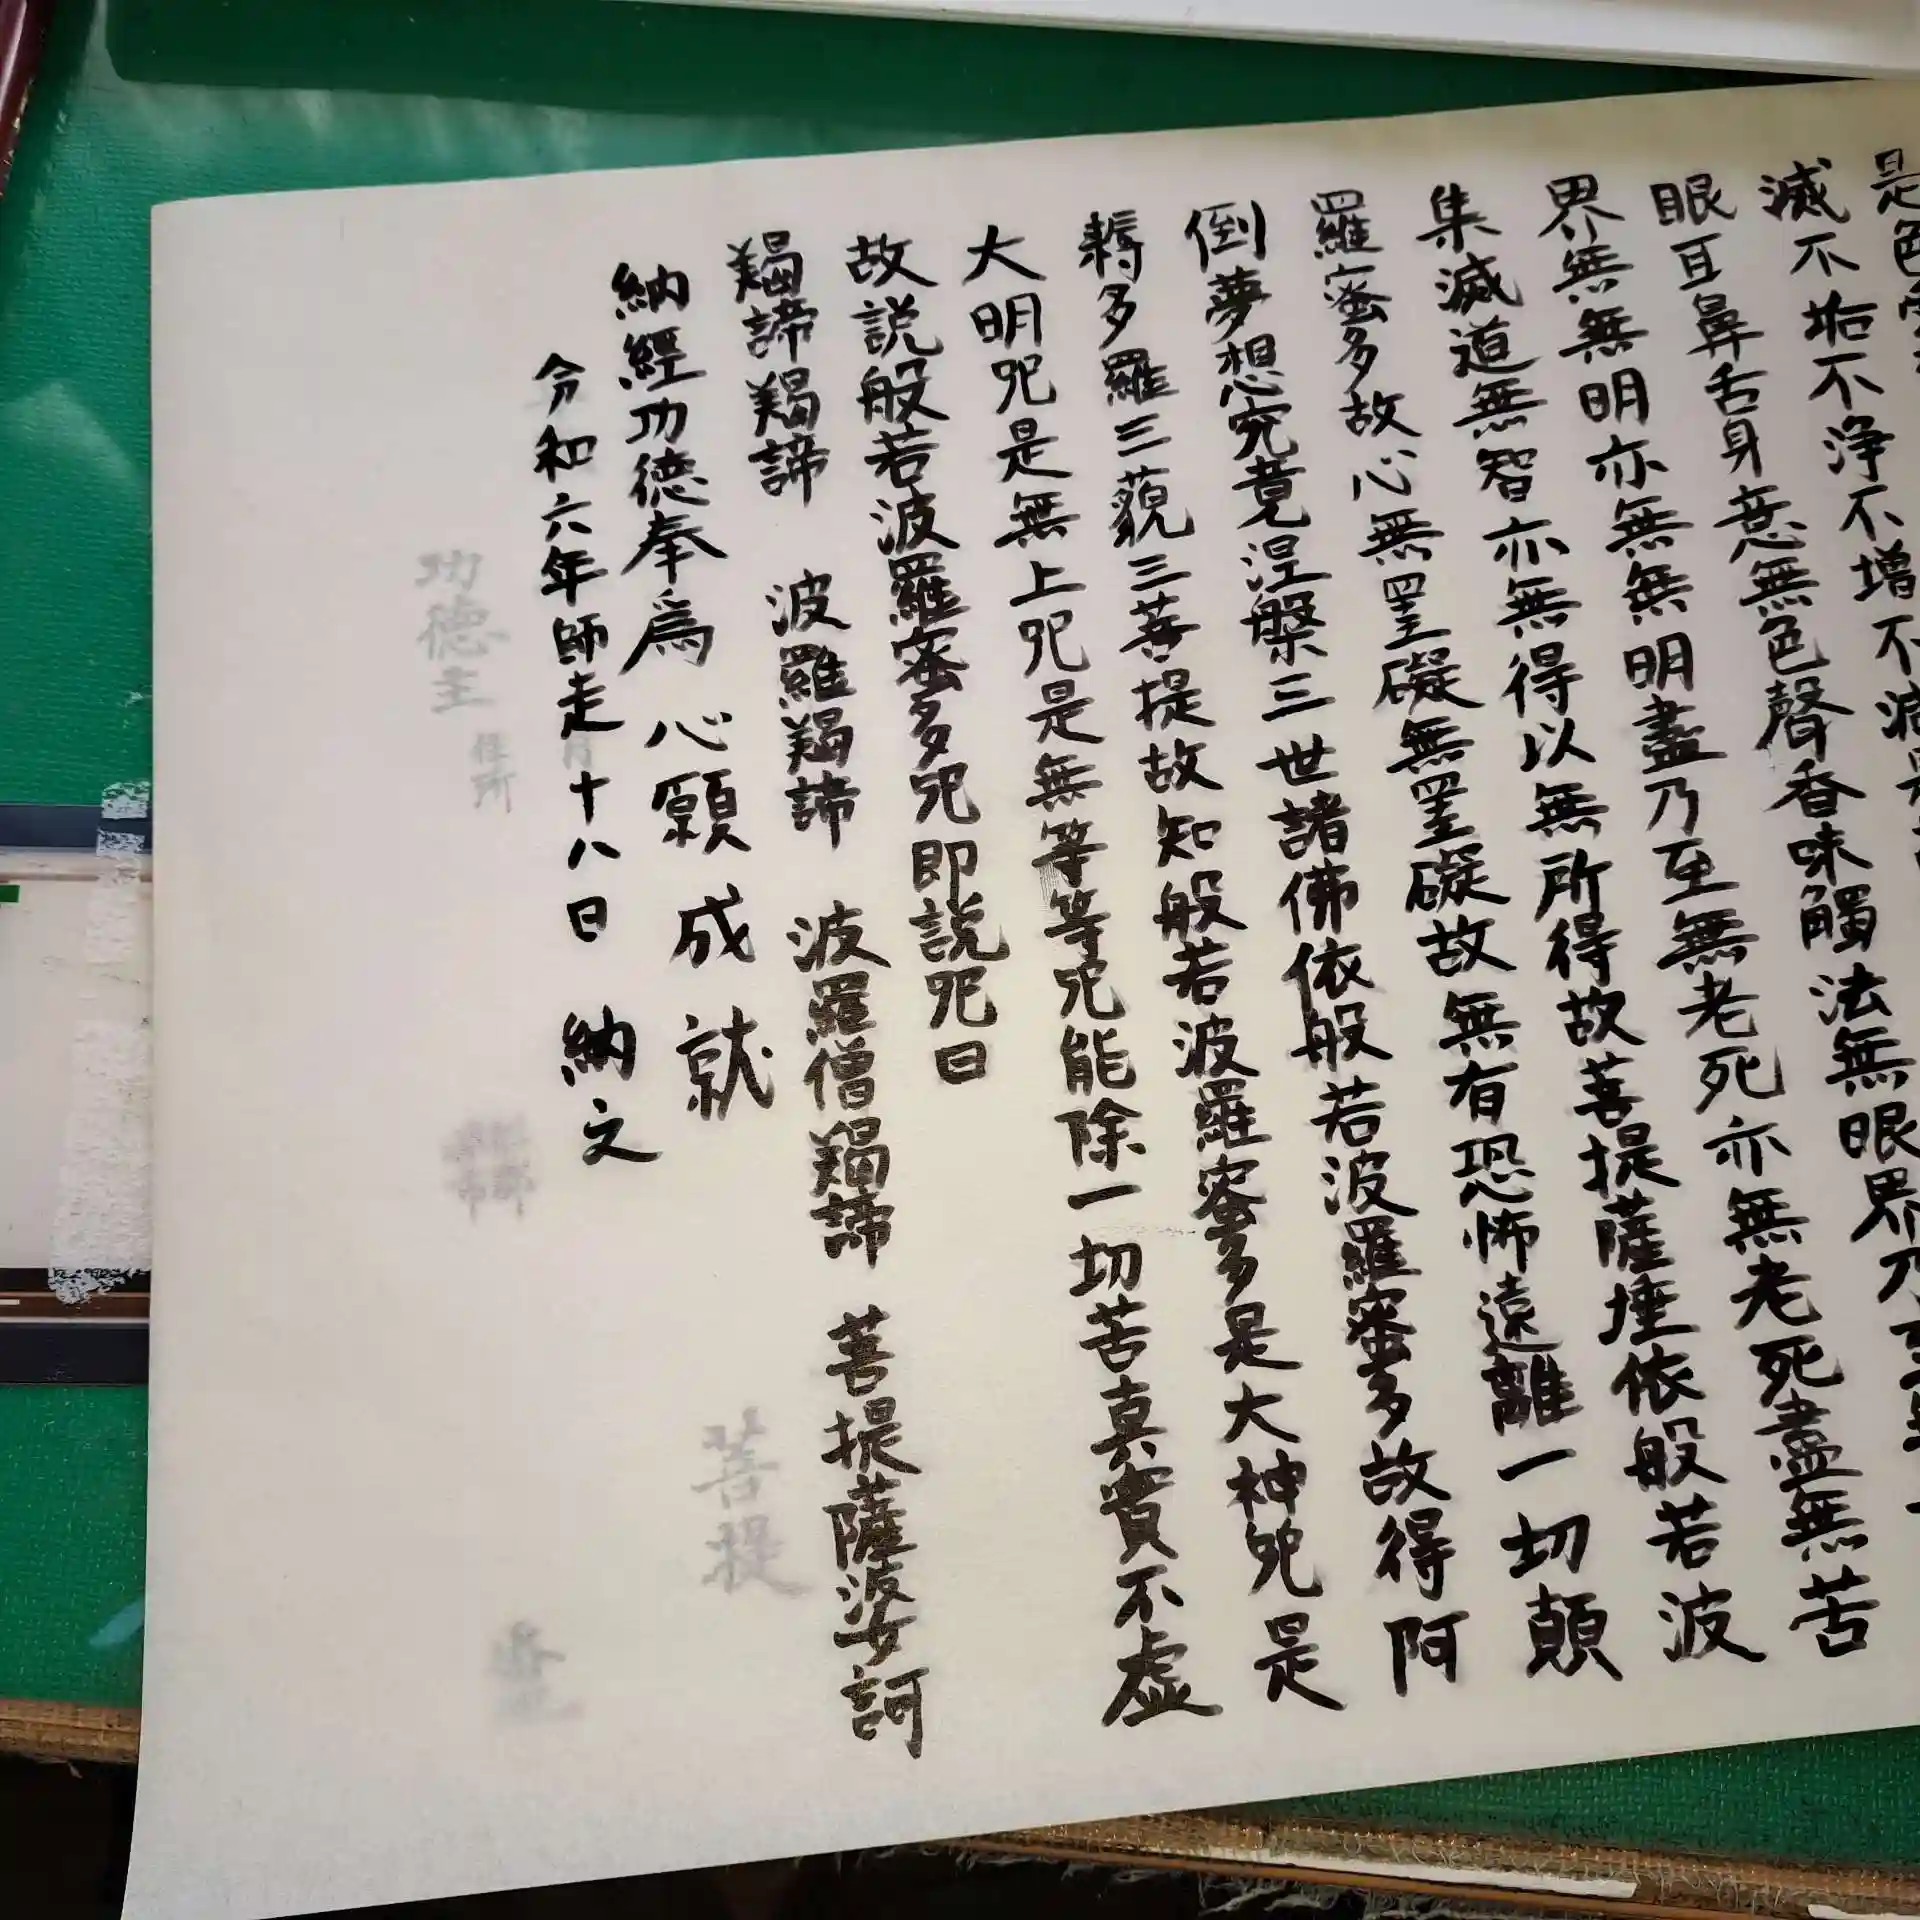 是色
滅不垢不浄不増不減是
眼耳鼻舌身意無色聲香味觸法無眼界乃至無
界無無明亦無無明盡乃至無老死亦無老死盡無苦
集滅道無智亦無得以無所得故菩提薩埵依般若波
羅蜜多故心無罣礙無罣礙故無有恐怖遠離一切顛
倒夢想究竟涅槃三世諸佛依般若波羅蜜多故得阿
耨多羅三藐三菩提故知般若波羅蜜多是大神咒是
大明咒是無上咒是無等等咒能除一切苦真實不虚
故説般若波羅蜜多咒即説咒曰
羯諦羯諦 波羅羯諦 波羅僧羯諦 菩提薩婆訶
納經功德奉爲 心願成就
菩提
令和六年師走十八日 納文
月
功德主 住所